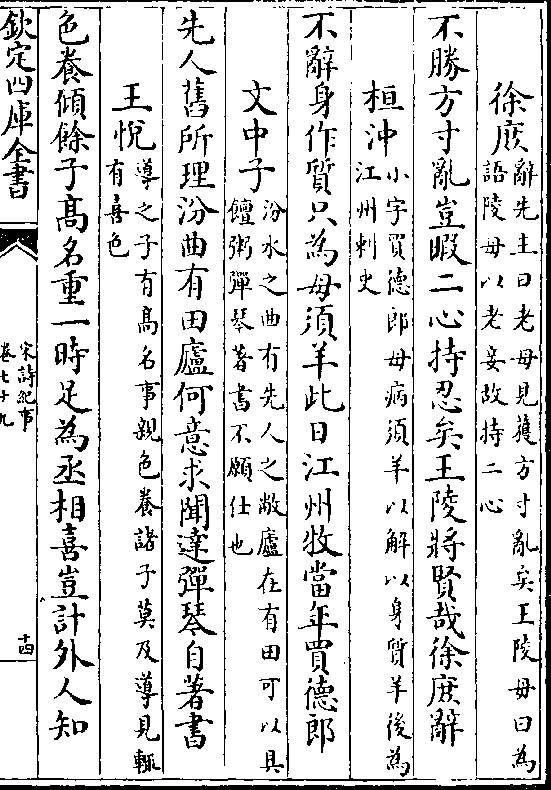 徐庶
辭先主曰老母見獲方寸亂矣王陵母曰為
語陵母以老妾故持二心
不勝方寸亂豈暇二心持忍矣王陵將賢哉徐庶辭
桓沖
小字買德郎母病須羊以解以身質羊後為
江州刺史
不辭身作質只為母須羊此日江州牧當年買德郎
文中子
汾水之曲有先人之敝廬在有田可以具
饘粥彈琴著書不願仕也
先人舊所理汾曲有田廬何意求聞達彈琴自著書
王悅
導之子有髙名事親色養諸子莫及導見輒
有喜色
色養傾餘子髙名重一時足為丞相喜豈計外人知
欽定四庫全書
宋詩紀事
卷七十九
十四